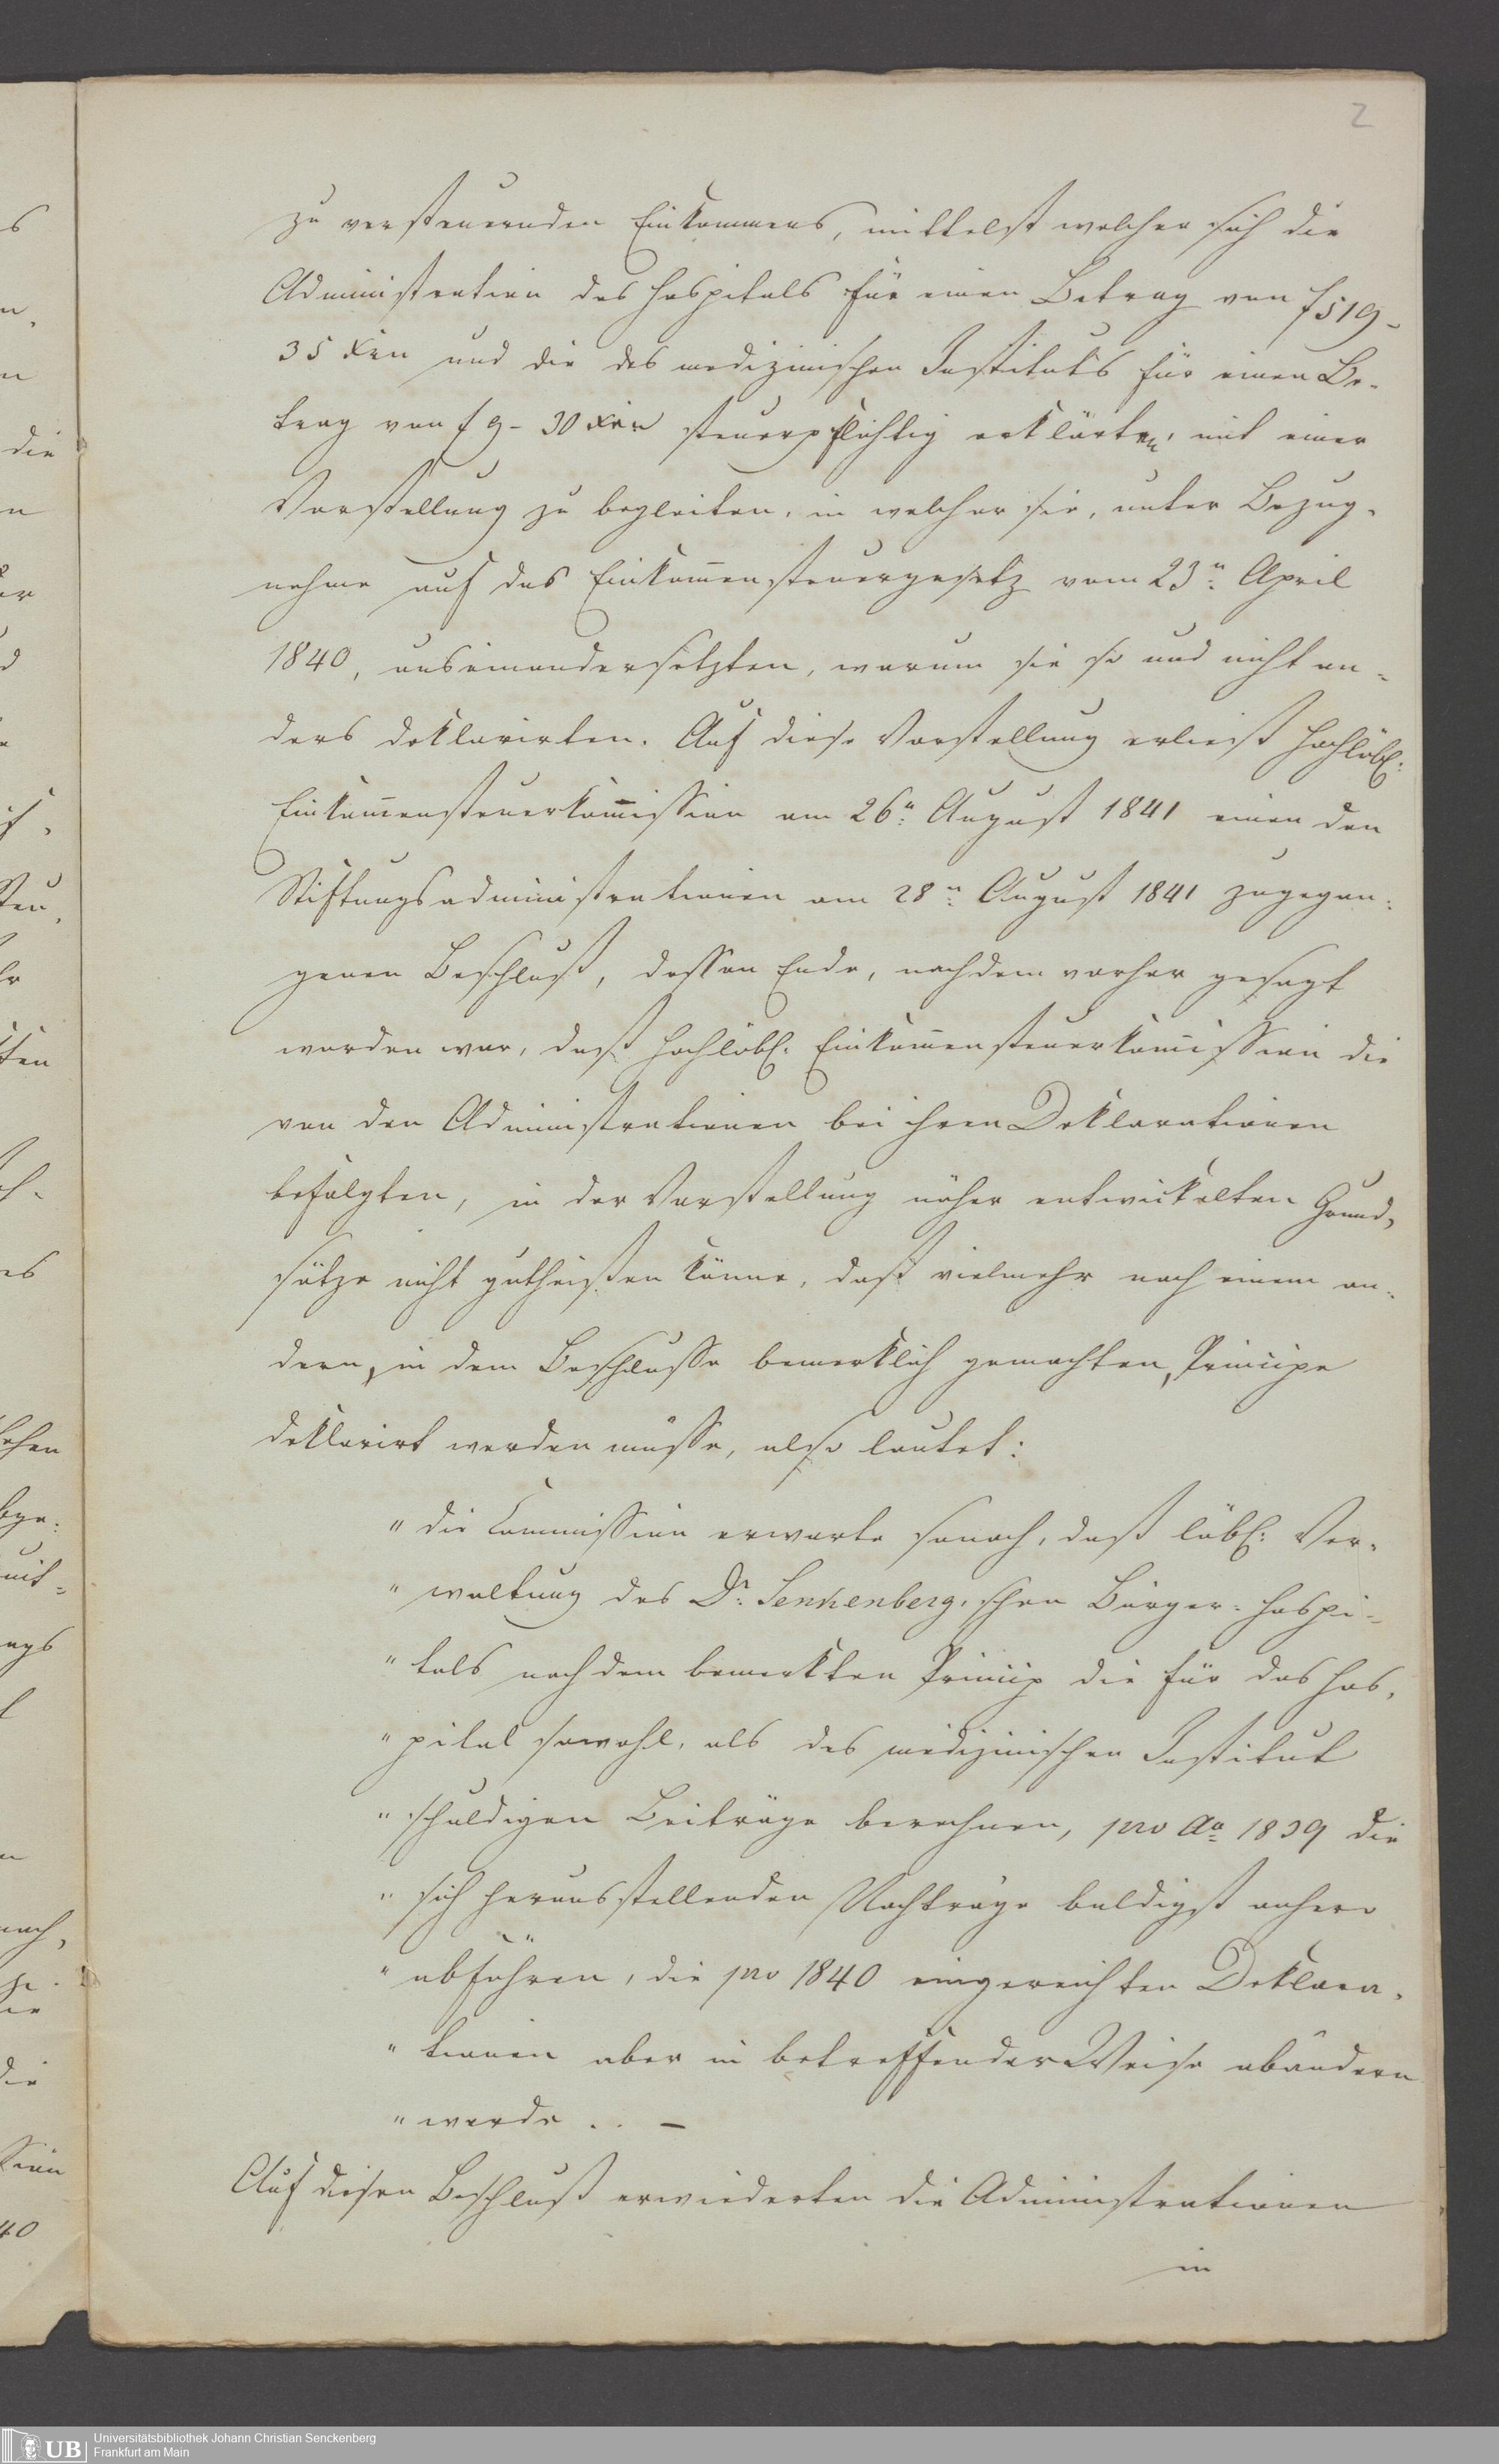 2
zu versteuernden Einkommens, mittelst welcher sich die
Administration des Hospitals für einen Betrag von f 519-
35 Xrn und die des medizinischen Instituts für einen Be-
trag von f 9- 30 Xrn steuerpflichtig erklärten, mit einer
Vorstellung zu begleiten, in welcher sie, unter Bezug-
nahme auf das Einkom̄ensteuergesetz vom 23n April
1840, auseinandersetzten, warum sie so und nicht an-
ders deklarirten. Auf diese Vorstellung erließ Hochlöbl:
Einkom̄ensteuerkom̄ission am 26n August 1841 einen den
Stiftungsadministrationen am 28n August 1841 zugegan-
genen Beschluß, dessen Ende, nachdem vorher gesagt
worden war, daß Hochlöbl: Einkom̄ensteuerkom̄ission die
von den Administrationen bei ihren Deklarationen
befolgten, in der Vorstellung näher entwickelten Grund-
sätze nicht gutheißen könne, daß vielmehr nach einem an-
dern, in dem Beschlusse bemerklich gemachten, Principe
deklarirt werden müsse, also lautet:
" die Commission erwarte sonach, daß löbl: Ver-
" waltung des Dr. Senkenberg'schen Bürger-Hospi-
" tals nach dem bemerkten Princip die für das Hos-
" pital sowohl, als das medizinischen Institut
" schuldigen Beiträge berechnen, pro Ao 1839 die
" sich herausstellenden Nachträge baldigst anhero
" abführen, die pro 1840 eingereichten Deklara-
" tionen aber in betreffender Weise abändern
" werde . . –
Auf diesen Beschluß erwiederten die Administrationen
in
UB
Universitätsbibliothek Johann Christian Senckenberg
Frankfurt am Main